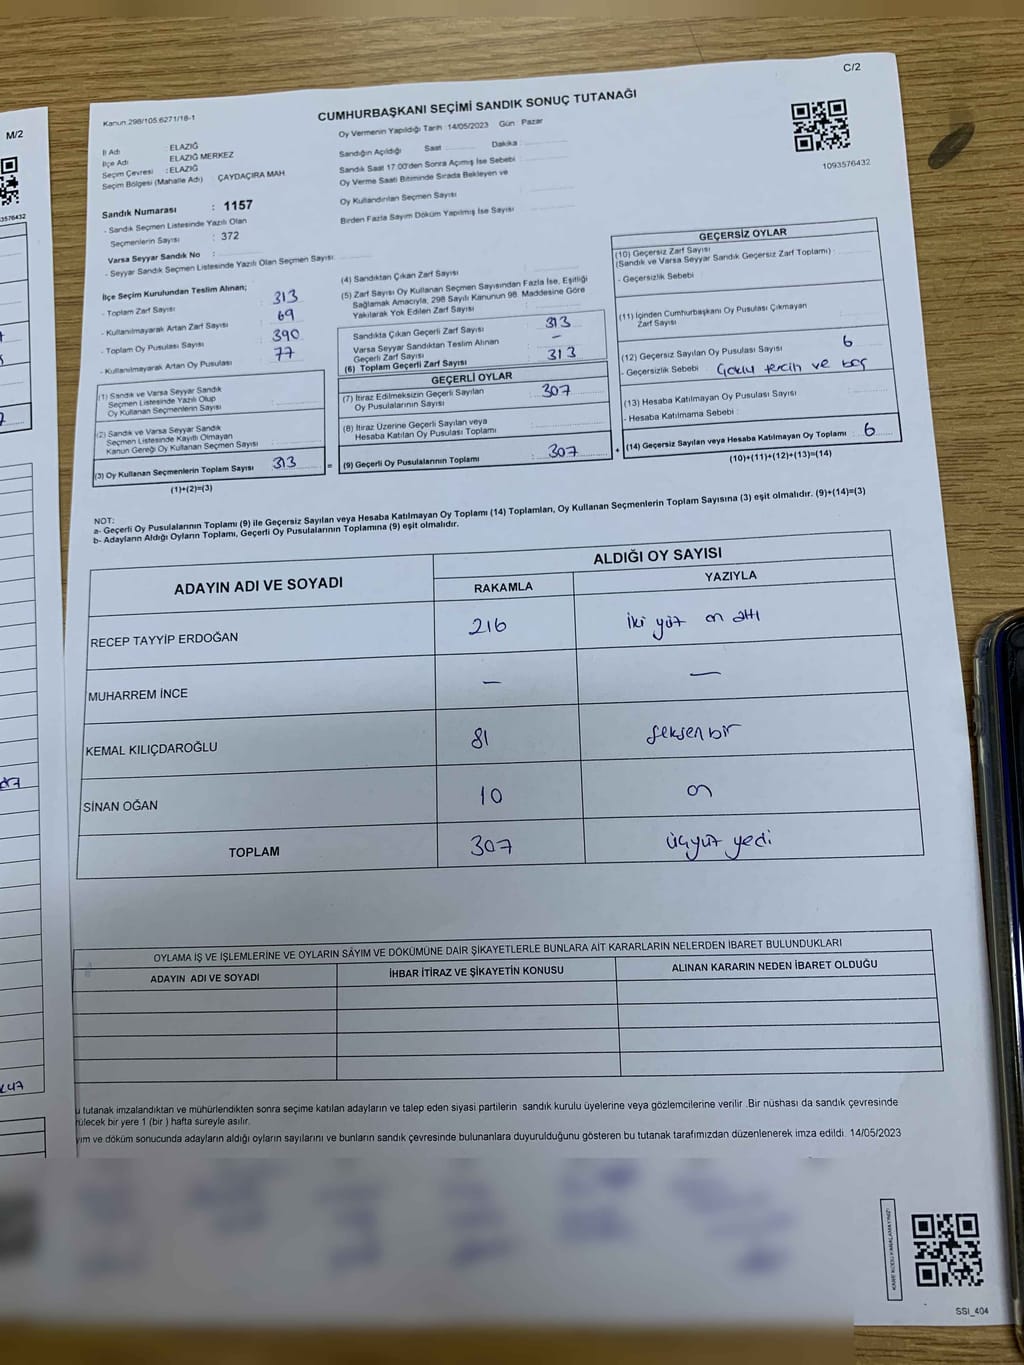 C/2
Kanun.298/105.6271/18-1
CUMHURBAŞKANI SEÇİMİ SANDIK SONUÇ TUTANAĞI
Oy Vermenin Yapıldığı Tarih :14/05/2023 Gün : Pazar
1093576432
İl Adı : ELAZIĞ
İlçe Adı : ELAZIĞ MERKEZ
Seçim Çevresi : ELAZIĞ
Seçim Bölgesi (Mahalle Adı) : ÇAYDAÇIRA MAH
Sandığın Açıldığı Saat Dakika :
Sandık Saat 17:00'den Sonra Açımış İse Sebebi
Oy Verme Saati Bitiminde Sırada Bekleyen ve
Oy Kullandırılan Seçmen Sayısı
Birden Fazla Sayım Döküm Yapılmış İse Sayısı
Sandık Numarası : 1157
- Sandık Seçmen Listesinde Yazılı Olan
Seçmenlerin Sayısı : 372
Varsa Seyyar Sandık No :
- Seyyar Sandık Seçmen Listesinde Yazılı Olan Seçmen Sayısı:
İlçe Seçim Kurulundan Teslim Alınan;
- Toplam Zarf Sayısı 313
- Kullanılmayarak Artan Zarf Sayısı 69
- Toplam Oy Pusulası Sayısı 390
- Kullanılmayarak Artan Oy Pusulası 77
(1) Sandık ve Varsa Seyyar Sandık
Seçmen Listesinde Yazılı Olup
Oy Kullanan Seçmenlerin Sayısı
(2) Sandık ve Varsa Seyyar Sandık
Seçmen Listesinde Kayıtlı Olmayan
Kanun Gereği Oy Kullanan Seçmen Sayısı
(3) Oy Kullanan Seçmenlerin Toplam Sayısı 313
(1)+(2)=(3)
(4) Sandıktan Çıkan Zarf Sayısı
(5) Zarf Sayısı Oy Kullanan Seçmen Sayısından Fazla İse, Eşitliği
Sağlamak Amacıyla, 298 Sayılı Kanunun 98. Maddesine Göre
Yakılarak Yok Edilen Zarf Sayısı
Sandıkta Çıkan Geçerli Zarf Sayısı 313
Varsa Seyyar Sandıktan Teslim Alınan
Geçerli Zarf Sayısı –
(6) Toplam Geçerli Zarf Sayısı 313
GEÇERLİ OYLAR
(7) İtiraz Edilmeksizin Geçerli Sayılan
Oy Pusulalarının Sayısı 307
(8) İtiraz Üzerine Geçerli Sayılan veya
Hesaba Katılan Oy Pusulası Toplamı
= (9) Geçerli Oy Pusulalarının Toplamı : 307 +
GEÇERSİZ OYLAR
(10) Geçersiz Zarf Sayısı
(Sandık ve Varsa Seyyar Sandık Geçersiz Zarf Toplamı) :
- Geçersizlik Sebebi :
(11) İçinden Cumhurbaşkanı Oy Pusulası Çıkmayan
Zarf Sayısı
(12) Geçersiz Sayılan Oy Pusulası Sayısı 6
- Geçersizlik Sebebi : Çoklu tercih ve boş
(13) Hesaba Katılmayan Oy Pusulası Sayısı
- Hesaba Katılmama Sebebi :
(14) Geçersiz Sayılan veya Hesaba Katılmayan Oy Toplamı : 6
(10)+(11)+(12)+(13)=(14)
NOT:
a- Geçerli Oy Pusulalarının Toplamı (9) ile Geçersiz Sayılan veya Hesaba Katılmayan Oy Toplamı (14) Toplamları, Oy Kullanan Seçmenlerin Toplam Sayısına (3) eşit olmalıdır. (9)+(14)=(3)
b- Adayların Aldığı Oyların Toplamı, Geçerli Oy Pusulalarının Toplamına (9) eşit olmalıdır.
ADAYIN ADI VE SOYADI
ALDIĞI OY SAYISI
RAKAMLA YAZIYLA
RECEP TAYYİP ERDOĞAN 216 iki yüz on altı
MUHARREM İNCE – –
KEMAL KILIÇDAROĞLU 81 Seksen bir
SİNAN OĞAN 10 on
TOPLAM 307 üçyüz yedi
OYLAMA İŞ VE İŞLEMLERİNE VE OYLARIN SAYIM VE DÖKÜMÜNE DAİR ŞİKAYETLERLE BUNLARA AİT KARARLARIN NELERDEN İBARET BULUNDUKLARI
ADAYIN ADI VE SOYADI İHBAR İTİRAZ VE ŞİKAYETİN KONUSU ALINAN KARARIN NEDEN İBARET OLDUĞU
u tutanak imzalandıktan ve mühürlendikten sonra seçime katılan adayların ve talep eden siyasi partilerin sandık kurulu üyelerine veya gözlemcilerine verilir .Bir nüshası da sandık çevresinde
rülecek bir yere 1 (bir ) hafta süreyle asılır.
yım ve döküm sonucunda adayların aldığı oyların sayılarını ve bunların sandık çevresinde bulunanlara duyurulduğunu gösteren bu tutanak tarafımızdan düzenlenerek imza edildi. 14/05/2023
SSI_404
M/2
3576432